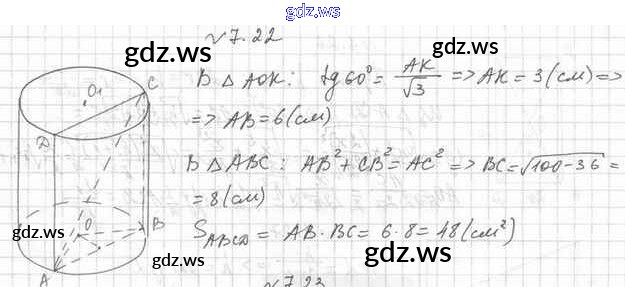 gdz.ws
№ 7.22
gdz.ws
gdz.ws
O₁
C
D
O
B
A
В △ AOK: tg 60° = AK/√3 => AK = 3 (см) =>
=> AB = 6 (см)
В △ ABC: AB² + CB² = AC² => BC = √(100-36) =
= 8 (см)
S_ABCD = AB · BC = 6 · 8 = 48 (см²)
gdz.ws
gdz.ws
gdz.ws
№ 7.23
gdz.ws